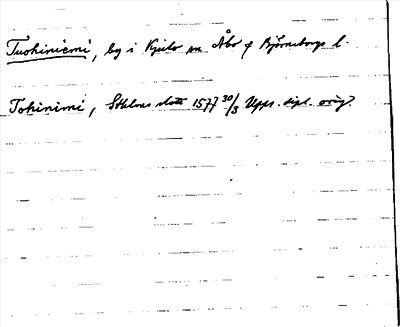 Tuohiniemi, by i Kjulo sn Åbo o Björneborgs l.
Tohinimi, Sthlms slott 1577 30/3 Upps. dipl. orig.